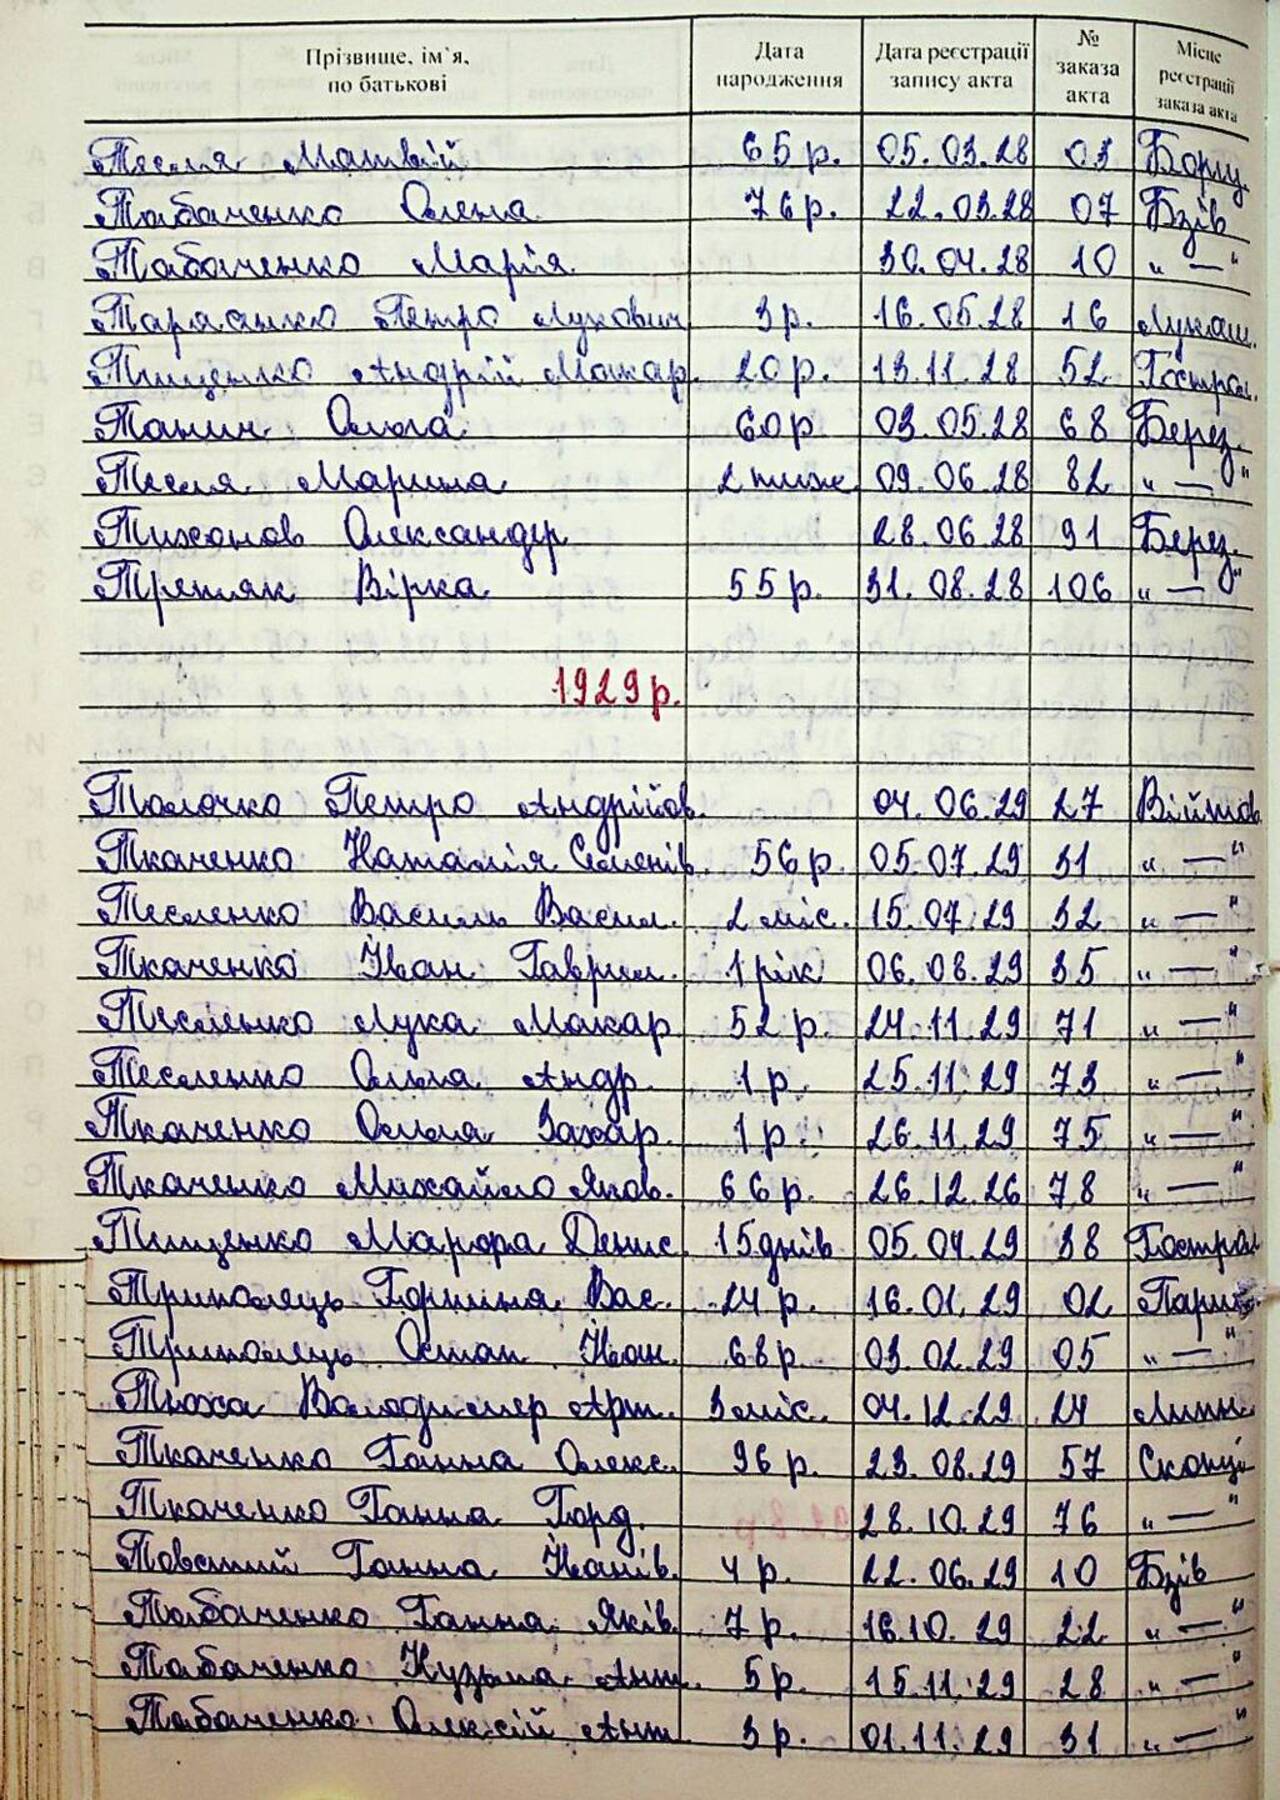 Прізвище, ім`я, по батькові Дата народження Дата реєстрації запису акта № заказа акта Місце реєстрації заказа акта
Тесля Матвій 65 р. 05.03.28 03 Борщ.
Табаченко Олена 76 р. 22.03.28 07 Бзів
Табаченко Марія 30.04.28 10 „ — "
Тарасенко Петро Лукович 3 р. 16.05.28 16 Лукаш.
Тищенко Андрій Макар. 20 р. 13.11.28 52 Гострол.
Танич Ольга 60 р 03.05.28 68 Берез.
Тесля Марина 2 тиж. 09.06.28 82 „ — "
Тихонов Олександр 28.06.28 91 Берез.
Третяк Вірка 55 р. 31.08.28 106 „ — "
1929 р.
Толочко Петро Андрійов. 04.06.29 27 Війтов.
Ткаченко Наталія Семенів. 56 р. 05.07.29 31 „ — "
Тесленко Василь Васил. 2 міс. 15.07.29 32 „ — "
Ткаченко Іван Гаврил. 1 рік 06.08.29 35 „ — "
Тесленко Лука Макар 52 р. 24.11.29 71 „ — "
Тесленко Ольга Андр. 1 р. 25.11.29 73 „ — "
Ткаченко Захар. 1 р. 26.11.29 75 „ — "
Ткаченко Михайло Яков. 66 р. 26.12.26 78 „ — "
Тищенко Марфа Денис. 15 днів 05.04.29 38 Гострол
Триполець Горпина Вас. 24 р. 16.01.29 02 Париш.
Триполець Остап Іван. 68 р. 03.02.29 05 „ — "
Тюха Володимер Арт. 3 міс. 04.12.29 24 Лихн.
Ткаченко Ганна Олекс. 96 р. 23.08.29 57 Скопці
Ткаченко Ганна Горд. 28.10.29 76 „ — "
Товстий Ганна Іванів. 4 р. 22.06.29 10 Бзів
Табаченко Ганна Яків. 7 р. 16.10.29 22 „ — "
Табаченко Кузьма Ант. 5 р. 15.11.29 28 „ — "
Табаченко Олексій Ант. 3 р. 01.11.29 31 „ — "